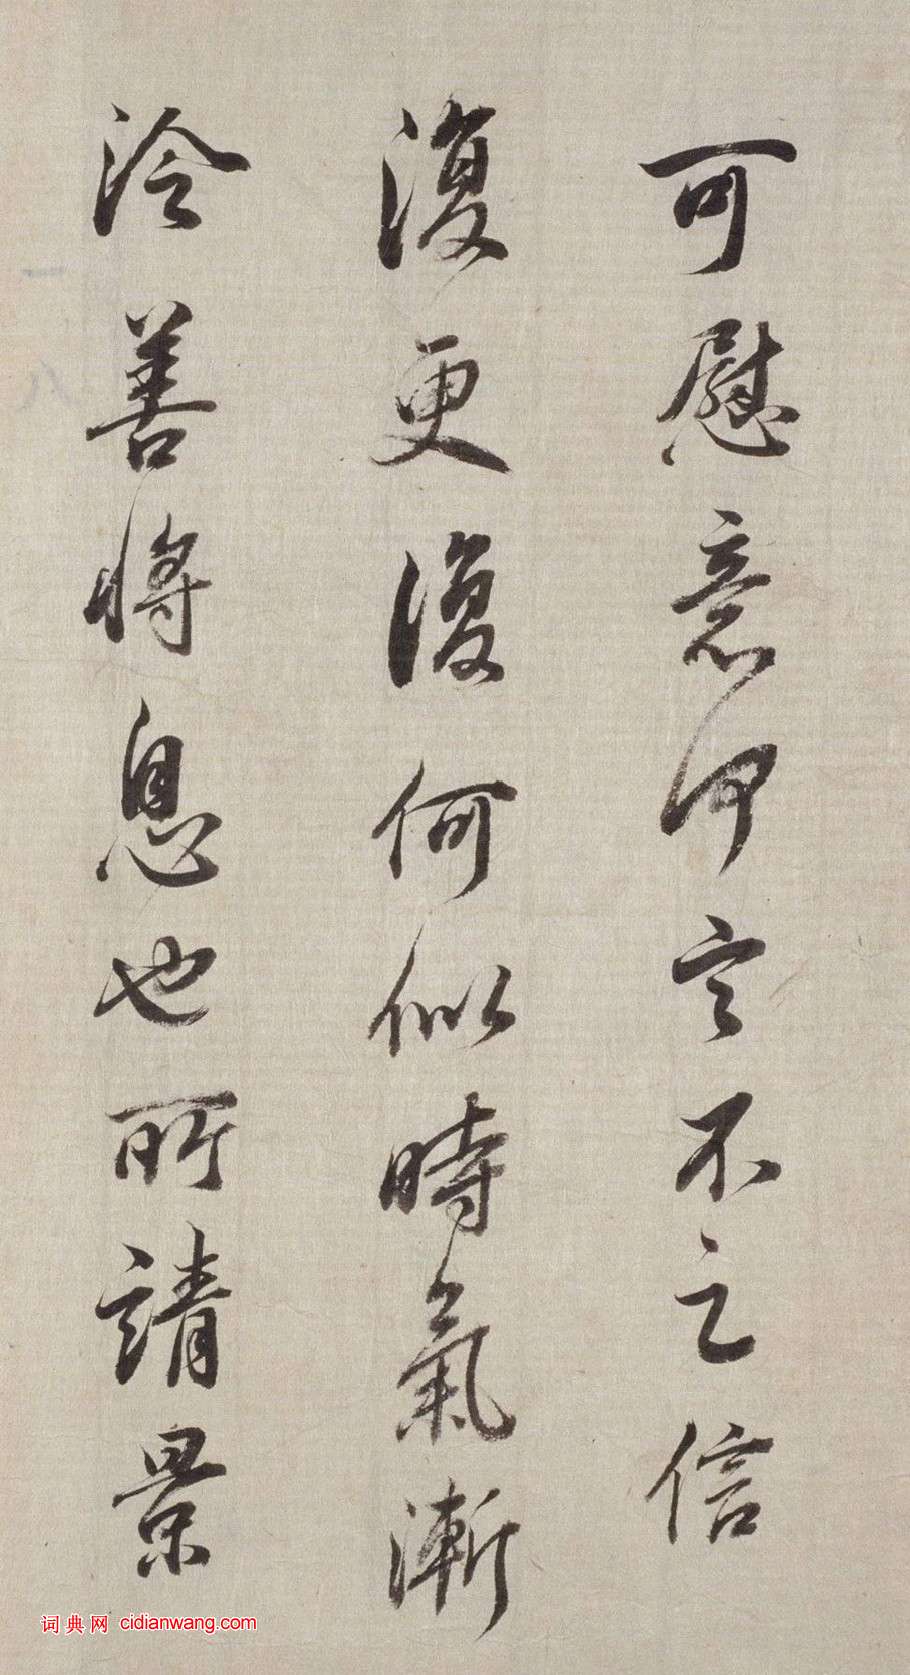 可慰意不之信
復更復何似時氣漸
冷善將息也所請景
词典网 cidianwang.com